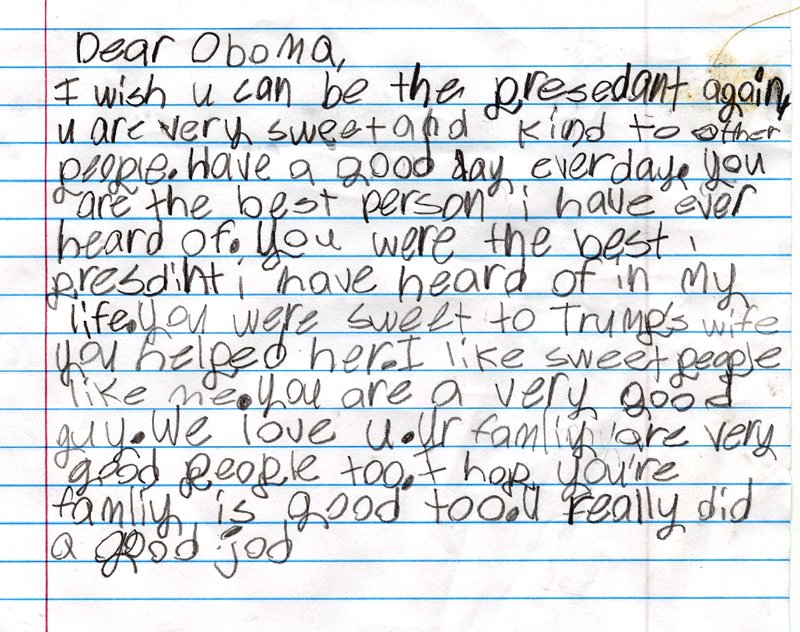 Dear Oboma,
I wish u can be the presedant again,
u are very sweet and kind to other
people. Have a good day everday. you
are the best person i have ever
heard of. You were the best
presdint i have heard of in my
life. you were sweet to Trump's wife
you helped her. I like sweet people
like me. you are a very good
guy. We love u. Ur famliy are very
good people too. I hop you're
famliy is good too. U really did
a good jod